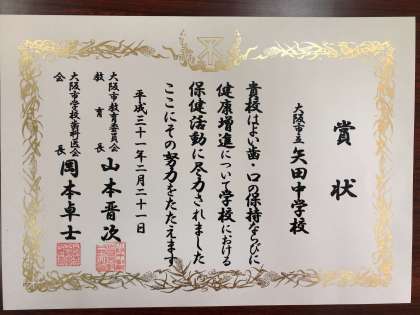 賞状
大阪市立 矢田中学校
貴校はよい歯・口の保持ならびに
健康増進について学校における
保健活動に尽力されました
ここにその努力をたたえます
平成三十一年二月二十一日
大阪市教育委員会
教育長 山本晋次
大阪市学校歯科医会
会長 岡本卓士